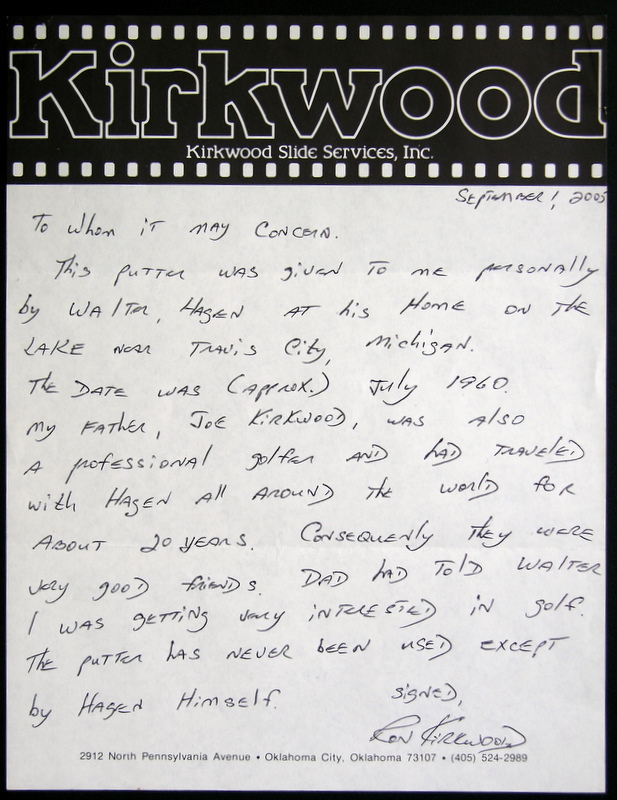 Kirkwood
Kirkwood Slide Services, Inc.
September 1, 2005
To whom it may concern.
This putter was given to me personally
by Walter, Hagen at his Home on the
Lake near Travis City, Michigan.
The Date was (approx.) July 1960.
my Father, Joe Kirkwood, was also
a professional golfer and had traveled
with Hagen all around the world for
about 20 years. Consequenly they were
very good friends. Dad had told Walter
I was getting very interested in golf.
The putter has never been used except
by Hagen Himself. signed,
Ron Kirkwood
2912 North Pennsylvania Avenue • Oklahoma City, Oklahoma 73107 • (405) 524-2989